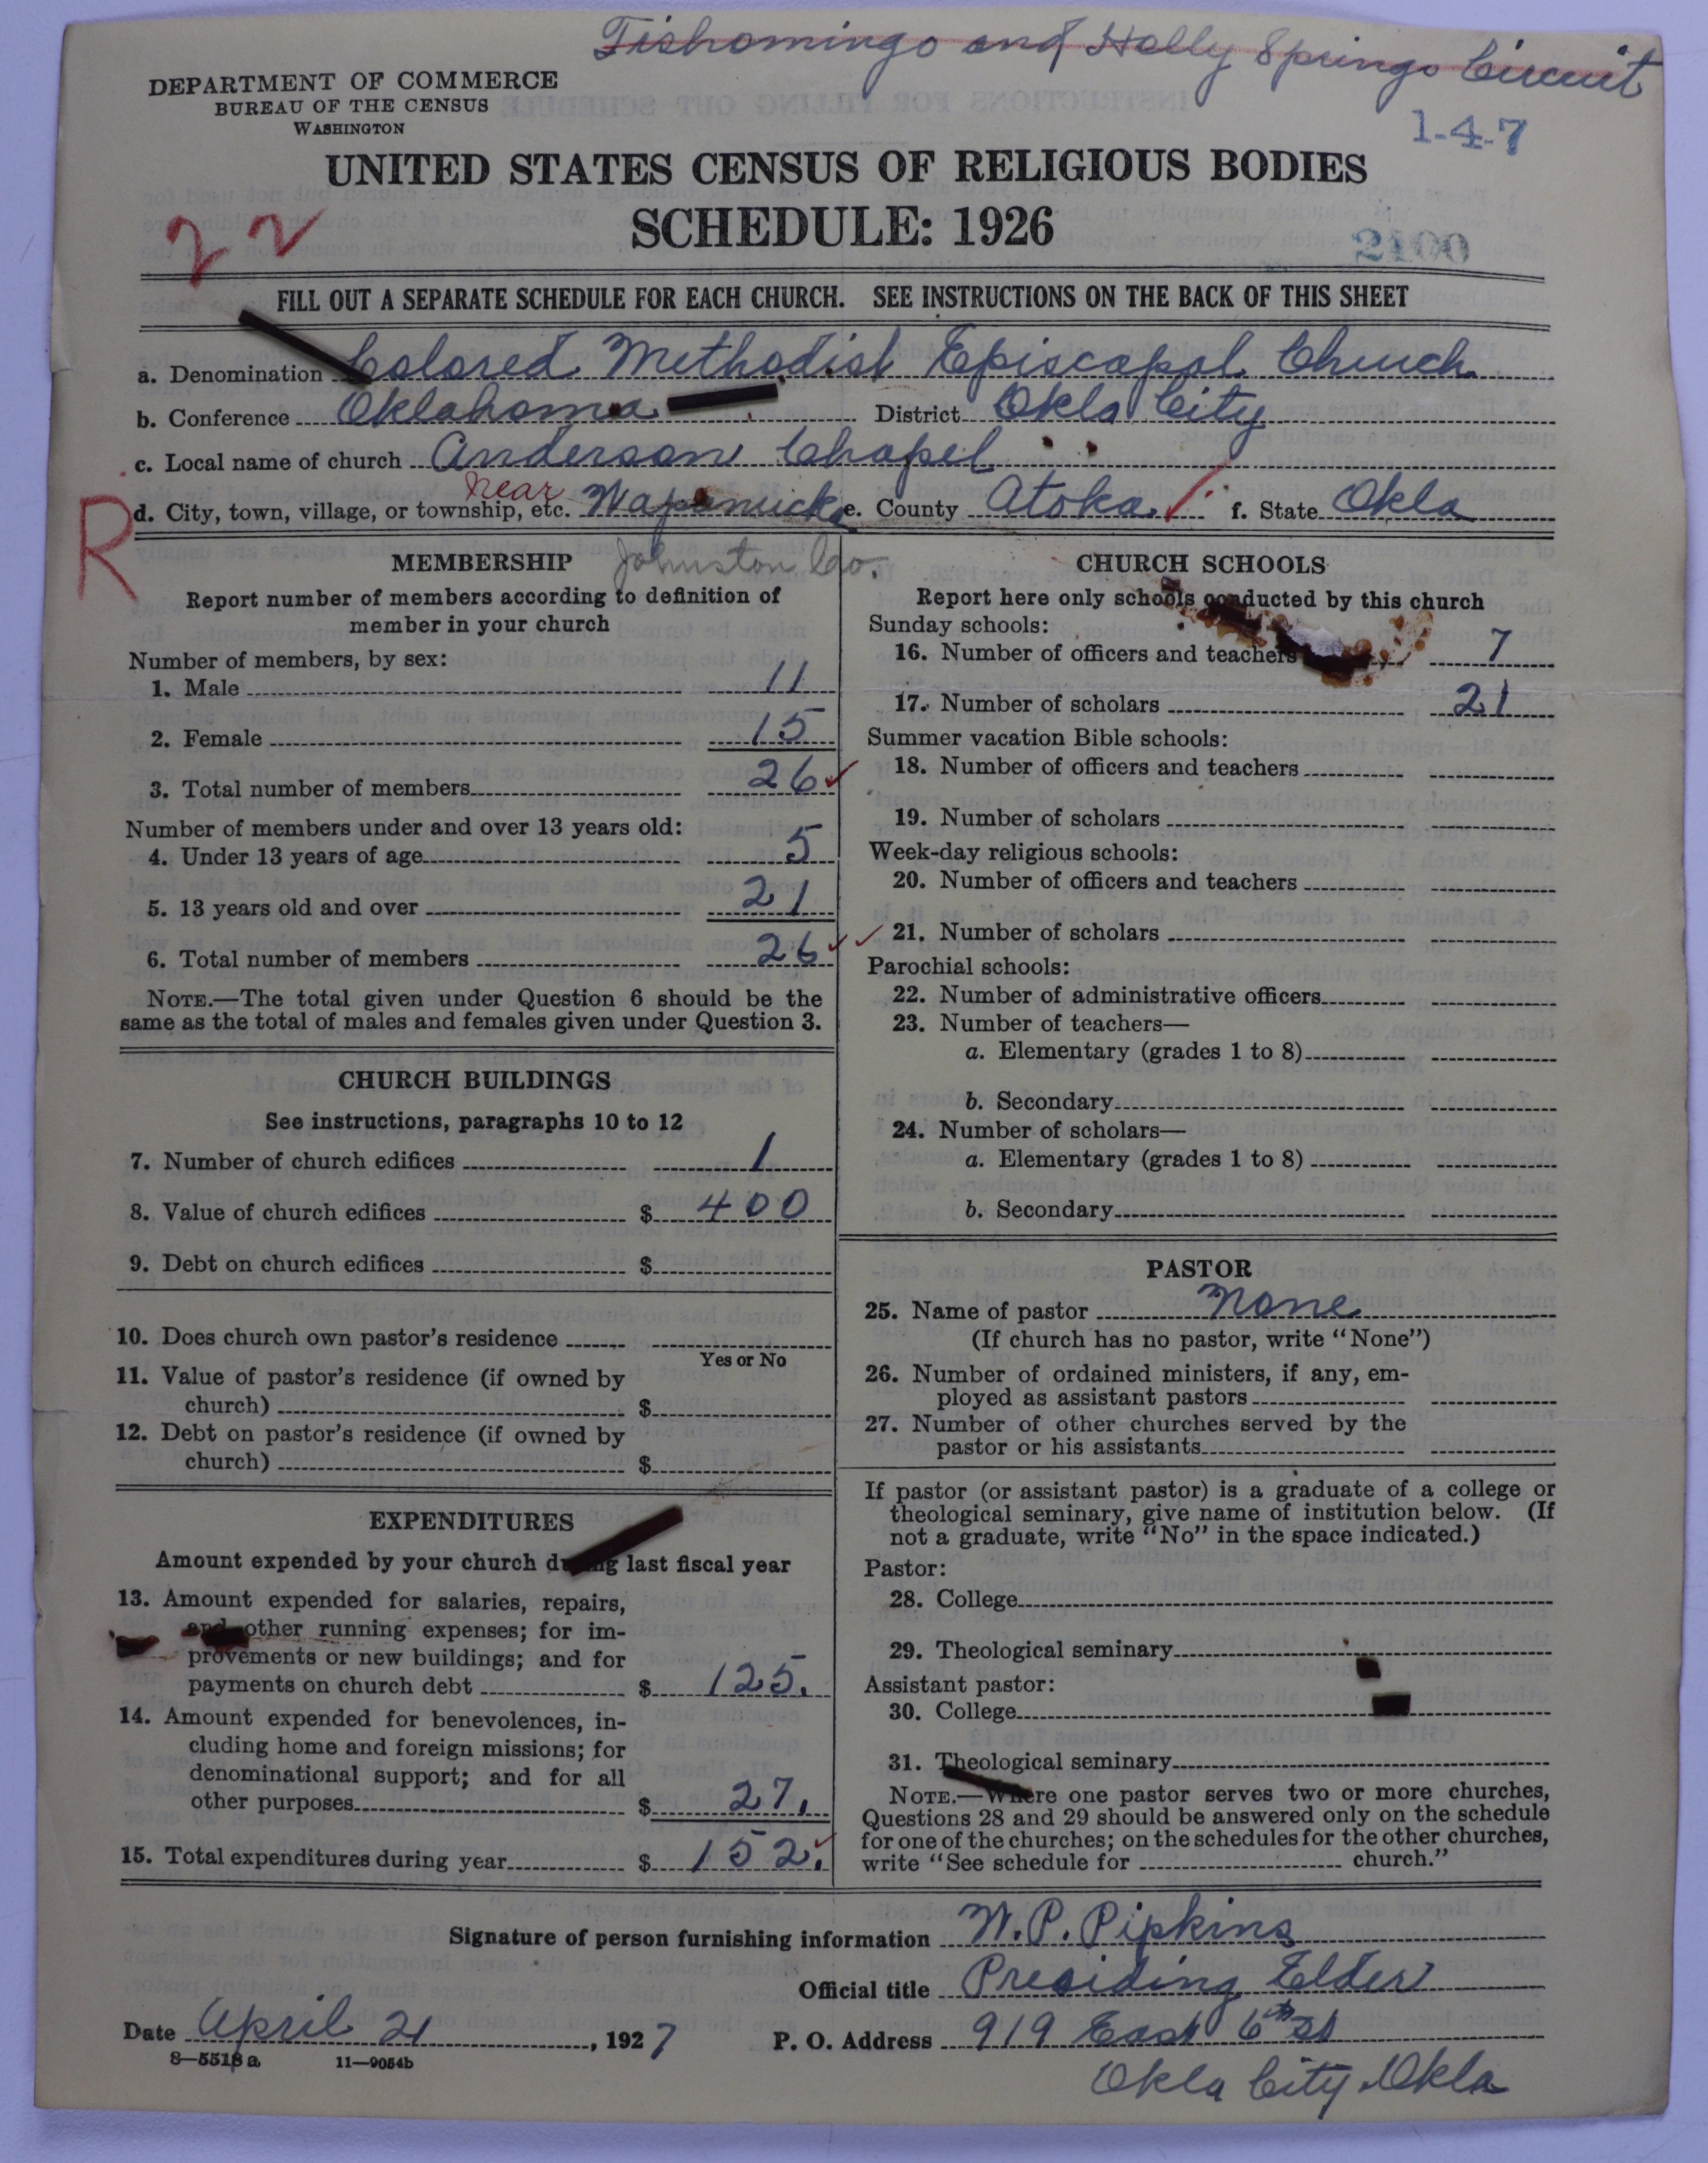 Tishomingo and Holly Springs Circuit
DEPARTMENT OF COMMERCE
BUREAU OF THE CENSUS
WASHINGTON
1-4-7
UNITED STATES CENSUS OF RELIGIOUS BODIES
SCHEDULE: 1926
22
2100
FILL OUT A SEPARATE SCHEDULE FOR EACH CHURCH. SEE INSTRUCTIONS ON THE BACK OF THIS SHEET
a. Denomination Colored Methodist Episcopal Church
b. Conference Oklahoma District Okla City
c. Local name of church Anderson Chapel
near
d. City, town, village, or township, etc. Wapanucka e. County Atoka f. State Okla
R
Johnston Co.
MEMBERSHIP
Report number of members according to definition of
member in your church
Number of members, by sex:
1. Male 11
2. Female 15
3. Total number of members 26
Number of members under and over 13 years old:
4. Under 13 years of age 5
5. 13 years old and over 21
6. Total number of members 26
NOTE.—The total given under Question 6 should be the
same as the total of males and females given under Question 3.
CHURCH BUILDINGS
See instructions, paragraphs 10 to 12
7. Number of church edifices 1
8. Value of church edifices $ 400
9. Debt on church edifices $
10. Does church own pastor's residence
Yes or No
11. Value of pastor's residence (if owned by
church) $
12. Debt on pastor's residence (if owned by
church) $
EXPENDITURES
Amount expended by your church during last fiscal year
13. Amount expended for salaries, repairs,
and other running expenses; for im-
provements or new buildings; and for
payments on church debt $ 125.
14. Amount expended for benevolences, in-
cluding home and foreign missions; for
denominational support; and for all
other purposes $ 27.
15. Total expenditures during year $ 152.
CHURCH SCHOOLS
Report here only schools conducted by this church
Sunday schools:
16. Number of officers and teachers 7
17. Number of scholars 21
Summer vacation Bible schools:
18. Number of officers and teachers
19. Number of scholars
Week-day religious schools:
20. Number of officers and teachers
21. Number of scholars
Parochial schools:
22. Number of administrative officers
23. Number of teachers—
a. Elementary (grades 1 to 8)
b. Secondary
24. Number of scholars—
a. Elementary (grades 1 to 8)
b. Secondary
PASTOR
25. Name of pastor None
(If church has no pastor, write "None")
26. Number of ordained ministers, if any, em-
ployed as assistant pastors
27. Number of other churches served by the
pastor or his assistants
If pastor (or assistant pastor) is a graduate of a college or
theological seminary, give name of institution below. (If
not a graduate, write "No" in the space indicated.)
Pastor:
28. College
29. Theological seminary
Assistant pastor:
30. College
31. Theological seminary
NOTE.—Where one pastor serves two or more churches,
Questions 28 and 29 should be answered only on the schedule
for one of the churches; on the schedules for the other churches,
write "See schedule for church."
Signature of person furnishing information W. P. Pipkins
Official title Presiding Elder
Date April 21, 1927 P. O. Address 919 East 6th St
8—5518a 11—9054b
Okla City Okla